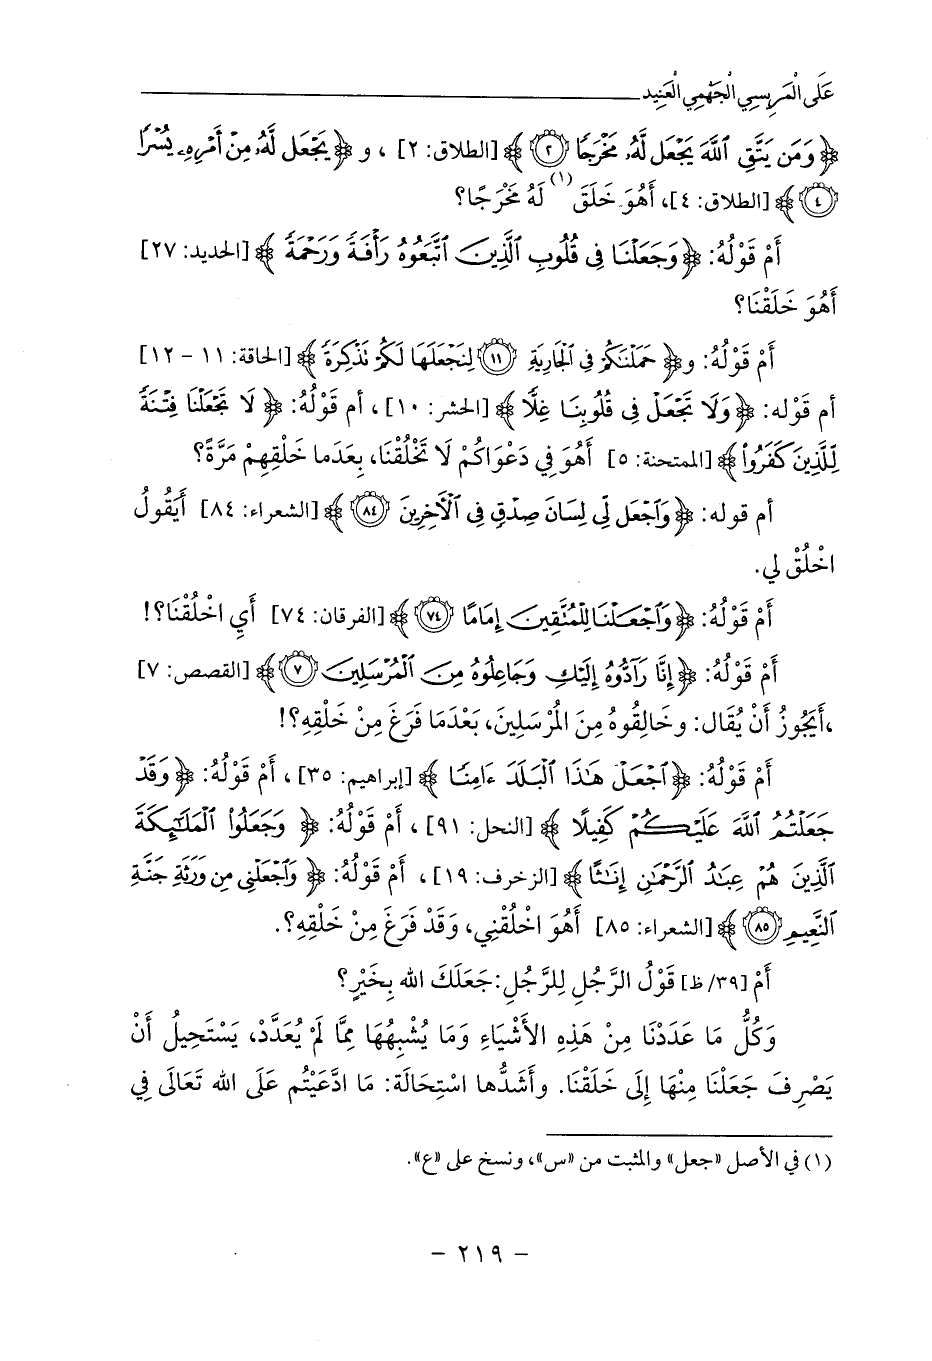 عَلَى الْمَرِيسِي الْجَهْمِي الْعَنِيد
﴿وَمَن يَتَّقِ ٱللَّهَ يَجْعَل لَّهُۥ مَخْرَجًا ٢﴾ [الطلاق: ٢] ، و ﴿يَجْعَل لَّهُۥ مِنْ أَمْرِهِۦ يُسْرًا
٤﴾ [الطلاق: ٤]، أَهُوَ خَلَقَ(١) لَهُ مَخْرَجًا؟
أَمْ قَوْلُهُ: ﴿وَجَعَلْنَا فِى قُلُوبِ ٱلَّذِينَ ٱتَّبَعُوهُ رَأْفَةً وَرَحْمَةً﴾ [الحديد: ٢٧]
أَهُوَ خَلَقْنَا؟
أَمْ قَوْلُهُ: و﴿حَمَلْنَٰكُمْ فِى ٱلْجَارِيَةِ ١١ لِنَجْعَلَهَا لَكُمْ تَذْكِرَةً﴾ [الحاقة: ١١ - ١٢]
أم قَوْله: ﴿وَلَا تَجْعَلْ فِى قُلُوبِنَا غِلًّا﴾ [الحشر: ١٠] ، أم قَوْلُهُ: ﴿لَا تَجْعَلْنَا فِتْنَةً
لِّلَّذِينَ كَفَرُوا۟﴾ [الممتحنة: ٥] أَهُوَ فِي دَعْوَاكُمْ لَا تَخْلُقْنَا، بِعَدَما خَلْقِهِمْ مَرَّةً؟
أم قوله: ﴿وَٱجْعَل لِّى لِسَانَ صِدْقٍ فِى ٱلْءَاخِرِينَ ٨٤﴾ [الشعراء: ٨٤] أَيَقُولُ
اخْلُقْ لي.
أَمْ قَوْلُهُ: ﴿وَٱجْعَلْنَا لِلْمُتَّقِينَ إِمَامًا ٧٤﴾ [الفرقان: ٧٤] أَي اخْلُقْنَا؟!
أَمْ قَوْلُهُ: ﴿إِنَّا رَآدُّوهُ إِلَيْكِ وَجَاعِلُوهُ مِنَ ٱلْمُرْسَلِينَ ٧﴾ [القصص: ٧]
،أَيَجُوزُ أَنْ يُقَال: وخَالِقُوهُ مِنَ المُرْسَلِينَ، بَعْدَمَا فَرَغَ مِنْ خَلْقِهِ؟!
أَمْ قَوْلُهُ: ﴿ٱجْعَلْ هَٰذَا ٱلْبَلَدَ ءَامِنًا﴾ [إبراهيم: ٣٥] ، أَمْ قَوْلُهُ: ﴿وَقَدْ
جَعَلْتُمُ ٱللَّهَ عَلَيْكُمْ كَفِيلًا﴾ [النحل: ٩١] ، أَمْ قَوْلُهُ: ﴿وَجَعَلُوا۟ ٱلْمَلَٰٓئِكَةَ
ٱلَّذِينَ هُمْ عِبَٰدُ ٱلرَّحْمَٰنِ إِنَٰثًا﴾ [الزخرف: ١٩] ، أَمْ قَوْلُهُ: ﴿وَٱجْعَلْنِى مِن وَرَثَةِ جَنَّةِ
ٱلنَّعِيمِ ٨٥﴾ [الشعراء: ٨٥] أَهُوَ اخْلُقْنِي، وَقَدْ فَرَغَ مِنْ خَلْقِهِ؟.
أَمْ [٣٩/ ظ] قَوْلُ الرَّجُلِ لِلرَّجُلِ: جَعَلَكَ الله بِخَيْرٍ؟
وَكُلُّ مَا عَدَدْنَا مِنْ هَذِهِ الأَشْيَاءِ وَمَا يُشْبِهُهَا مِمَّا لَمْ يُعَدَّدْ، يَسْتَحِيلُ أَنْ
يَصْرِفَ جَعَلْنَا مِنْهَا إِلَى خَلَقْنَا. وأَشَدُّها اسْتِحَالَة: مَا ادَّعَيْتُم عَلَى الله تَعَالَى فِي
(١) في الأصل «جعل» والمثبت من «س»، ونسخ على «ع».
- ٢١٩ -